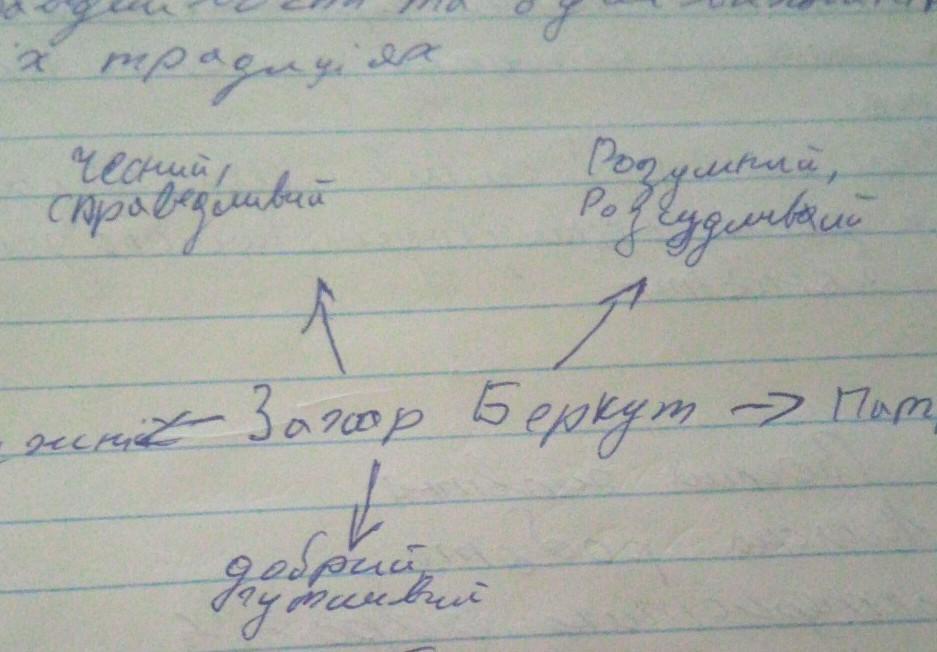 їх традиціях
Чесний,
справедливий
Розумний,
Розсудливий
Захар Беркут → Пат
добрий,
чуйливий